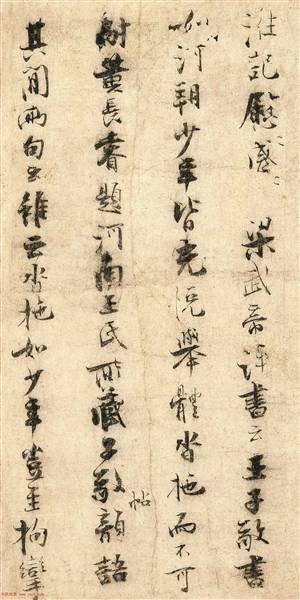 記慰感〻梁武帝評書云王子敬書
如河朔少年皆充悅舉體沓拖而不可
耐黃長睿題河南王氏所藏子敬韻語
帖
其間兩句云雖云沓拖如少年豈至拘攣